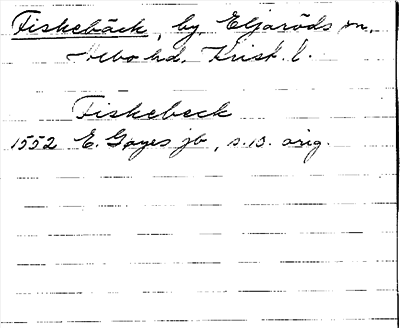 Fiskebäck, by, Eljaröds sn,
Albo hd. Krist. l.
Fiskebeck
1552 E. Gøyes jb, s. 10. orig.